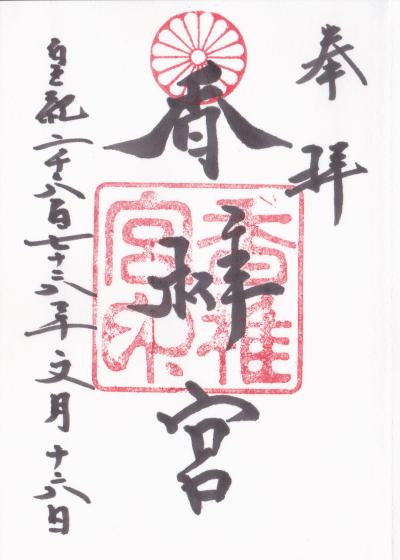 奉拝
香椎宮
香椎
宮印
皇紀二千六百七十六年文月十六日